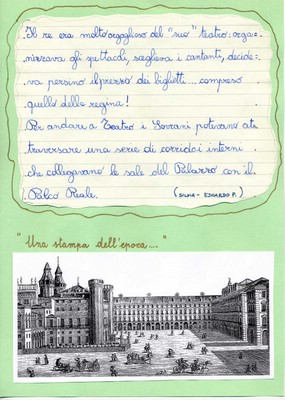 Il re era molto orgoglioso del "suo" teatro: orga=
nizzava gli spettacoli, sceglieva i cantanti, decide=
va persino il prezzo dei biglietti... compreso
quello della regina!
Per andare a Teatro i Sovrani potevano at=
traversare una serie di corridoi interni
che collegavano le sale del Palazzo con il
Palco Reale.
(SILVIA - EDOARDO P.)
"Una stampa dell'epoca...."